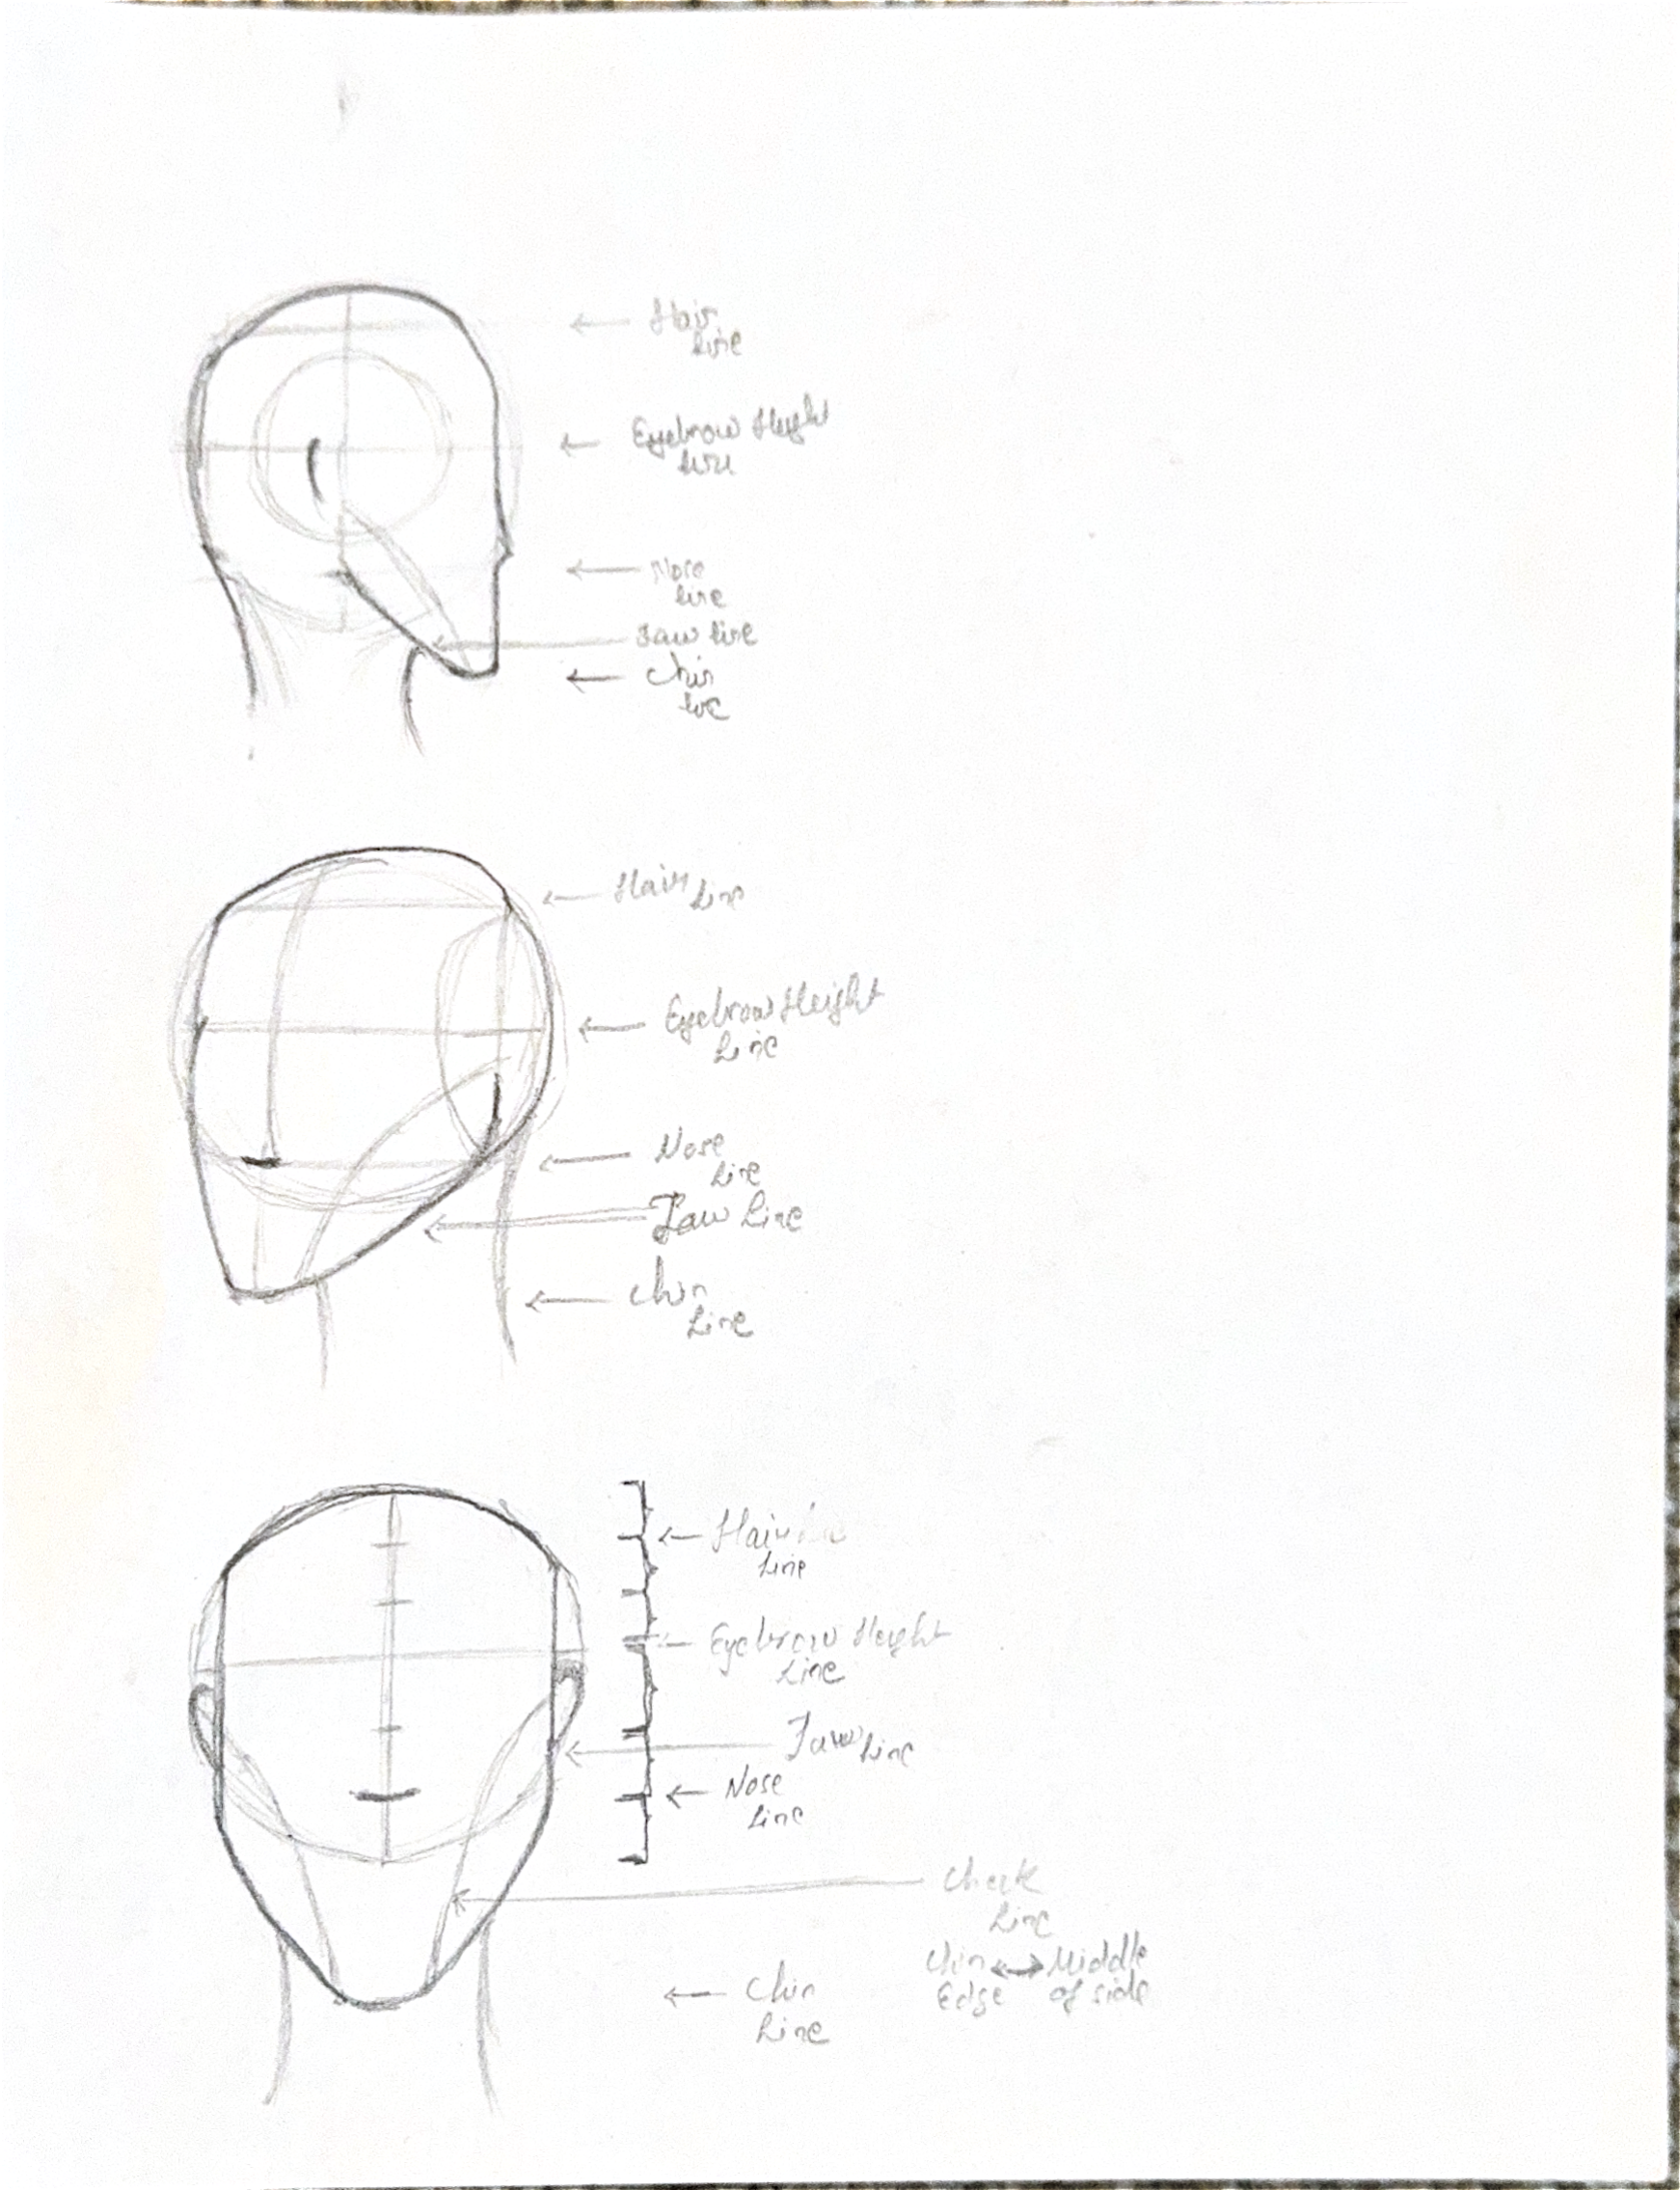 Hair
line
Eyebrow Height
line
Nose
line
Jaw line
Chin
line
Hair line
Eyebrow Height
Line
Nose
Line
Jaw Line
Chin
Line
Hair
Line
Eyebrow Height
Line
Jaw Line
Nose
Line
Cheek
Line
Chin ↔ Middle
Edge of side
Chin
Line